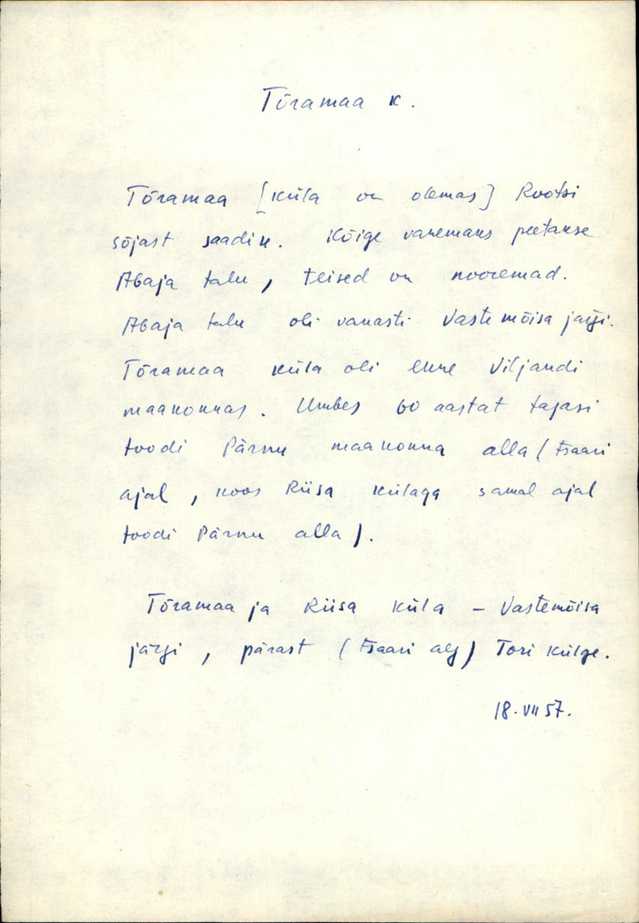 Tõramaa k.
Tõramaa [küla on olemas] Rootsi
sõjast saadik. Kõige vanemaks peetakse
Abaja talu, teised on nooremad.
Abaja talu oli vanasti Vastemõisa järgi.
Tõramaa küla oli enne Viljandi
maakonnas. Umbes 60 aastat tagasi
toodi Pärnu maakonna alla (Tsaari
ajal, koos Riisa külaga samal ajal
toodi Pärnu alla).
Tõramaa ja Riisa küla – Vastemõisa
järgi, pärast (Tsaari alg) Tori külge.
18.VII 57.